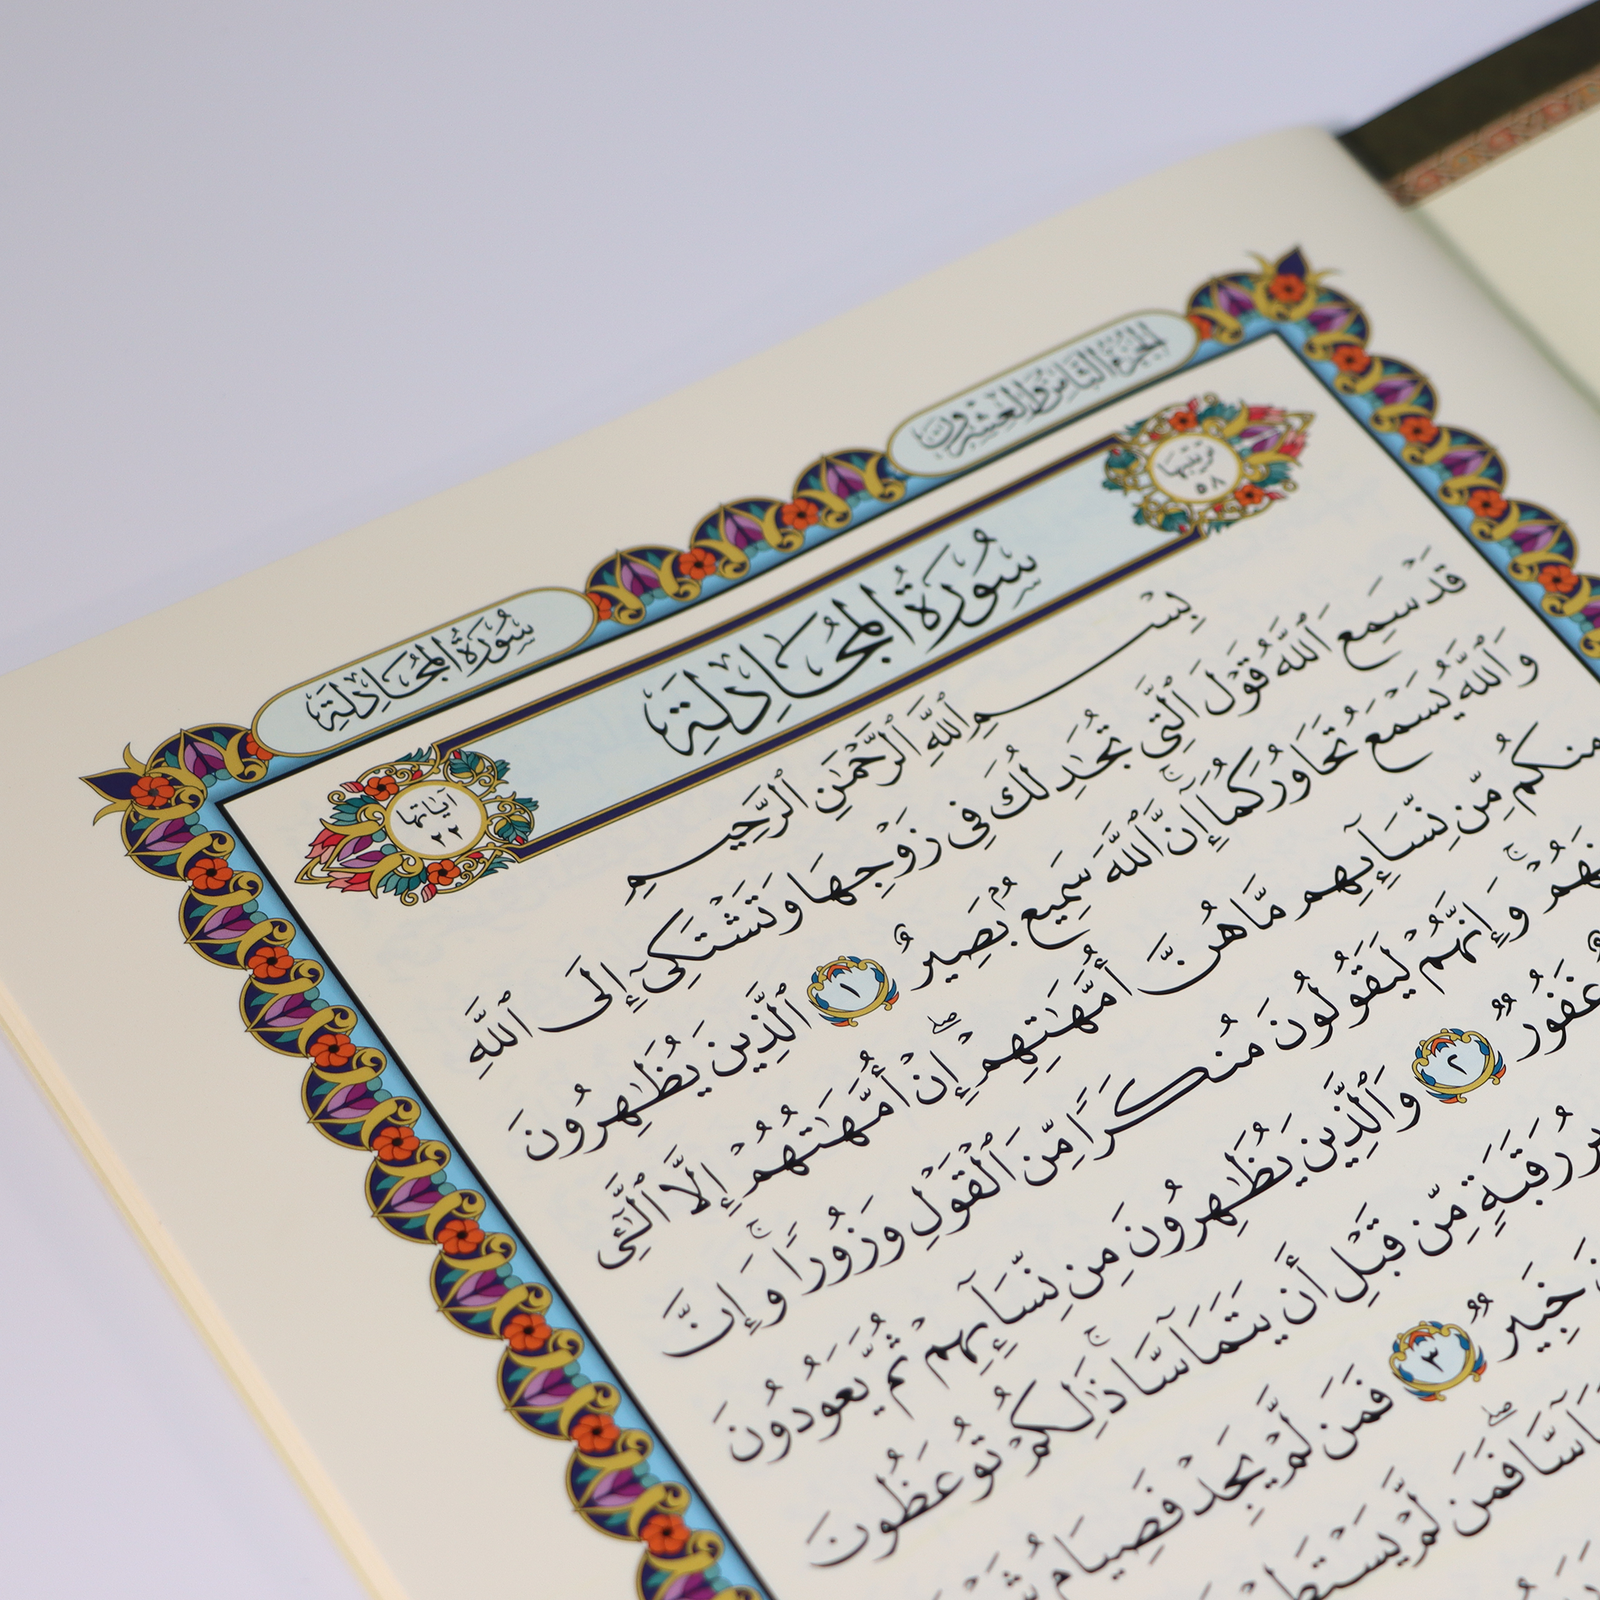 الجزء الثامن والعشرون
سورة المجادلة
ترتيبها
٥٨
سُورَةُ المُجَادِلَةِ
آياتها
٢٢
بِسْمِ ٱللَّهِ ٱلرَّحْمَٰنِ ٱلرَّحِيمِ
قَدْ سَمِعَ ٱللَّهُ قَوْلَ ٱلَّتِى تُجَٰدِلُكَ فِى زَوْجِهَا وَتَشْتَكِىٓ إِلَى ٱللَّهِ
وَٱللَّهُ يَسْمَعُ تَحَاوُرَكُمَآ ۚ إِنَّ ٱللَّهَ سَمِيعٌۢ بَصِيرٌ ١ ٱلَّذِينَ يُظَٰهِرُونَ
مِنكُم مِّن نِّسَآئِهِم مَّا هُنَّ أُمَّهَٰتِهِمْ ۖ إِنْ أُمَّهَٰتُهُمْ إِلَّا ٱلَّٰٓـِٔى
وَإِنَّهُمْ لَيَقُولُونَ مُنكَرًا مِّنَ ٱلْقَوْلِ وَزُورًا ۚ وَإِنَّ
غَفُورٌ ٢ وَٱلَّذِينَ يُظَٰهِرُونَ مِن نِّسَآئِهِمْ ثُمَّ يَعُودُونَ
رَقَبَةٍ مِّن قَبْلِ أَن يَتَمَآسَّا ۚ ذَٰلِكُمْ تُوعَظُونَ
خَبِيرٌ ٣ فَمَن لَّمْ يَجِدْ فَصِيَامُ
فَمَن لَّمْ يَسْتَطِعْ